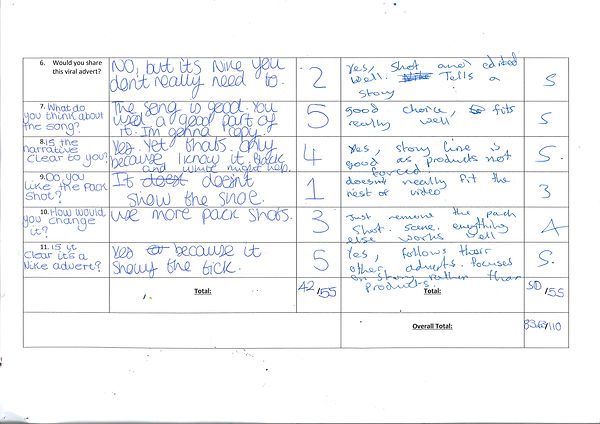 6. Would you share
this viral advert?
NO, but its Nike you
don't really need to.
2
Yes, shot and edited
well. Tells a
story
5
7. What do
you think about
the song?
The song is good. You
used a good part of
it. Im gonna copy.
5
good choice, fits
really well
5
8. Is the
narrative
clear to you?
Yes. Yet thats only
because I know it. Black
and white might help.
4
Yes, story line is
good as products not
forced.
5.
9. Do you
like the Pack
Shot?
It doesnt
show the shoe.
1
doesn't really fit the
rest of video
3
10. How would
you change
it?
use more pack shots.
3
Just remove the pack
shot. scene. everything
else works well
4
11. Is it
clear it's a
Nike advert?
Yes because it
shows the tick.
5
Yes, follows their
other adverts. focuses
on story rather than
products.
5.
Total:
42/55
Total:
50/55
Overall Total:
/110